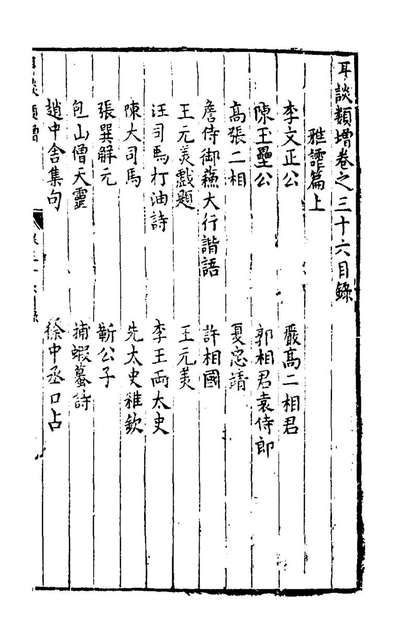 耳談類增卷之三十六目錄
雅謔篇上
李文正公 嚴高二相君
陳玉壘公 郭相君袁侍郎
高張二相 夏忠靖
詹侍御蘇大行諧語 許相國
王元美戲題 王元美
汪司馬打油詩 李王兩太史
陳大司馬 先太史雅飲
張巽解元 靳公子
包山僧天靈 捕蝦蟇詩
趙中舍集句 徐中丞口占